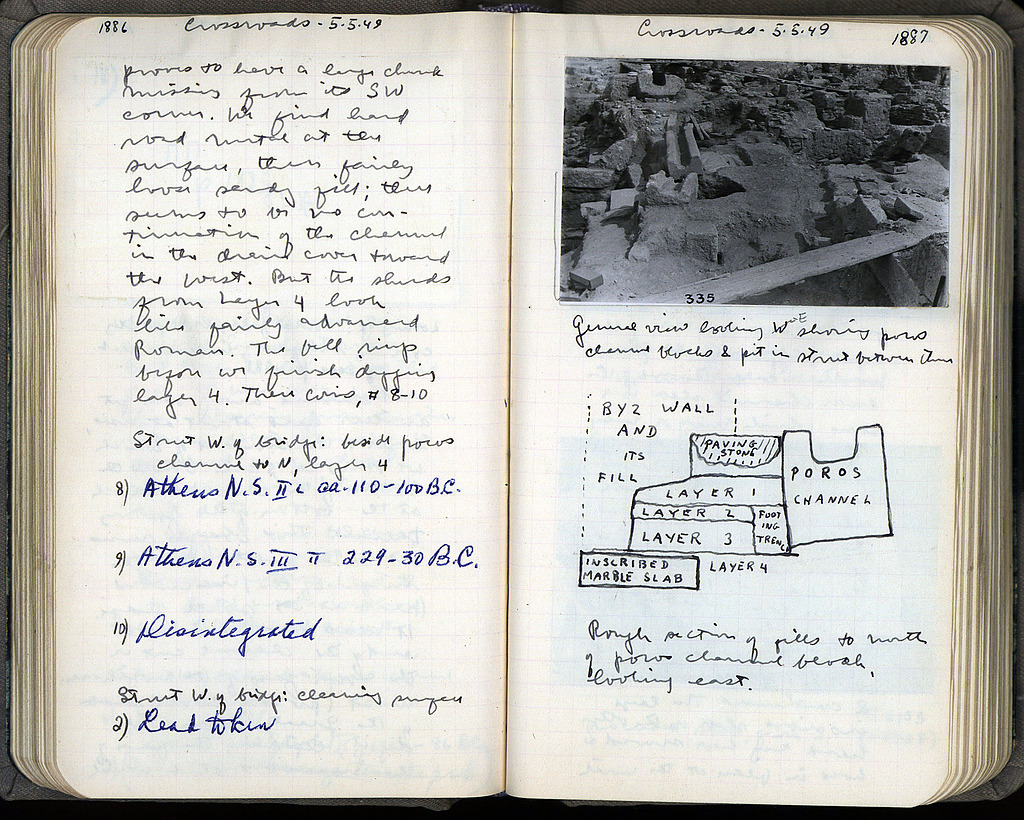 1886
Crossroads - 5.5.49
proves to have a large chunk
missing from its SW
corner. We find hard
road metal at the
surface, then fairly
loose sandy fill; there
seems to be no con-
tinuation of the channel
in the drain cover toward
the west. But the sherds
from Layer 4 look
like fairly advanced
Roman. The bell rings
before we finish digging
layer 4. Three coins, # 8-10
Street W. of bridge: beside poros
channel to N, layer 4
8) Athens N.S. II ca. 110-100 B.C.
9) Athens N.S. III 229-30 B.C.
10) Disintegrated
Street W. of bridge: cleaning surface
2) Lead token
Crossroads - 5.5.49
1887
335
General view looking W-E showing poros
channel blocks & pit in street between them
BYZ WALL
AND
ITS
FILL
PAVING
STONE
POROS
CHANNEL
LAYER 1
LAYER 2
LAYER 3
FOOT
ING
TRENCH
INSCRIBED
MARBLE SLAB
LAYER 4
Rough section of fills to north
of poros channel block,
looking east.